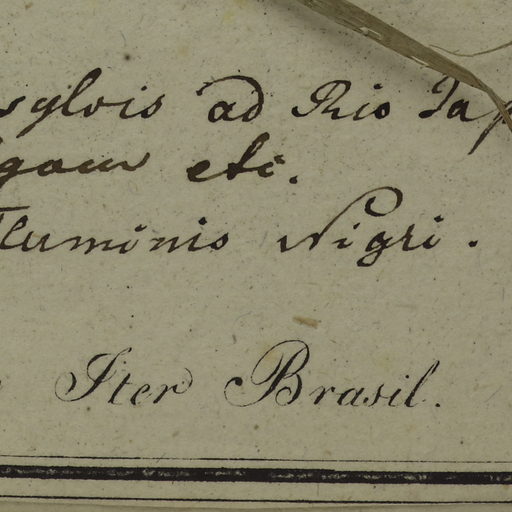 sylvis ad Rio Jap
etc.
Fluminis Nigri.
Iter Brasil.